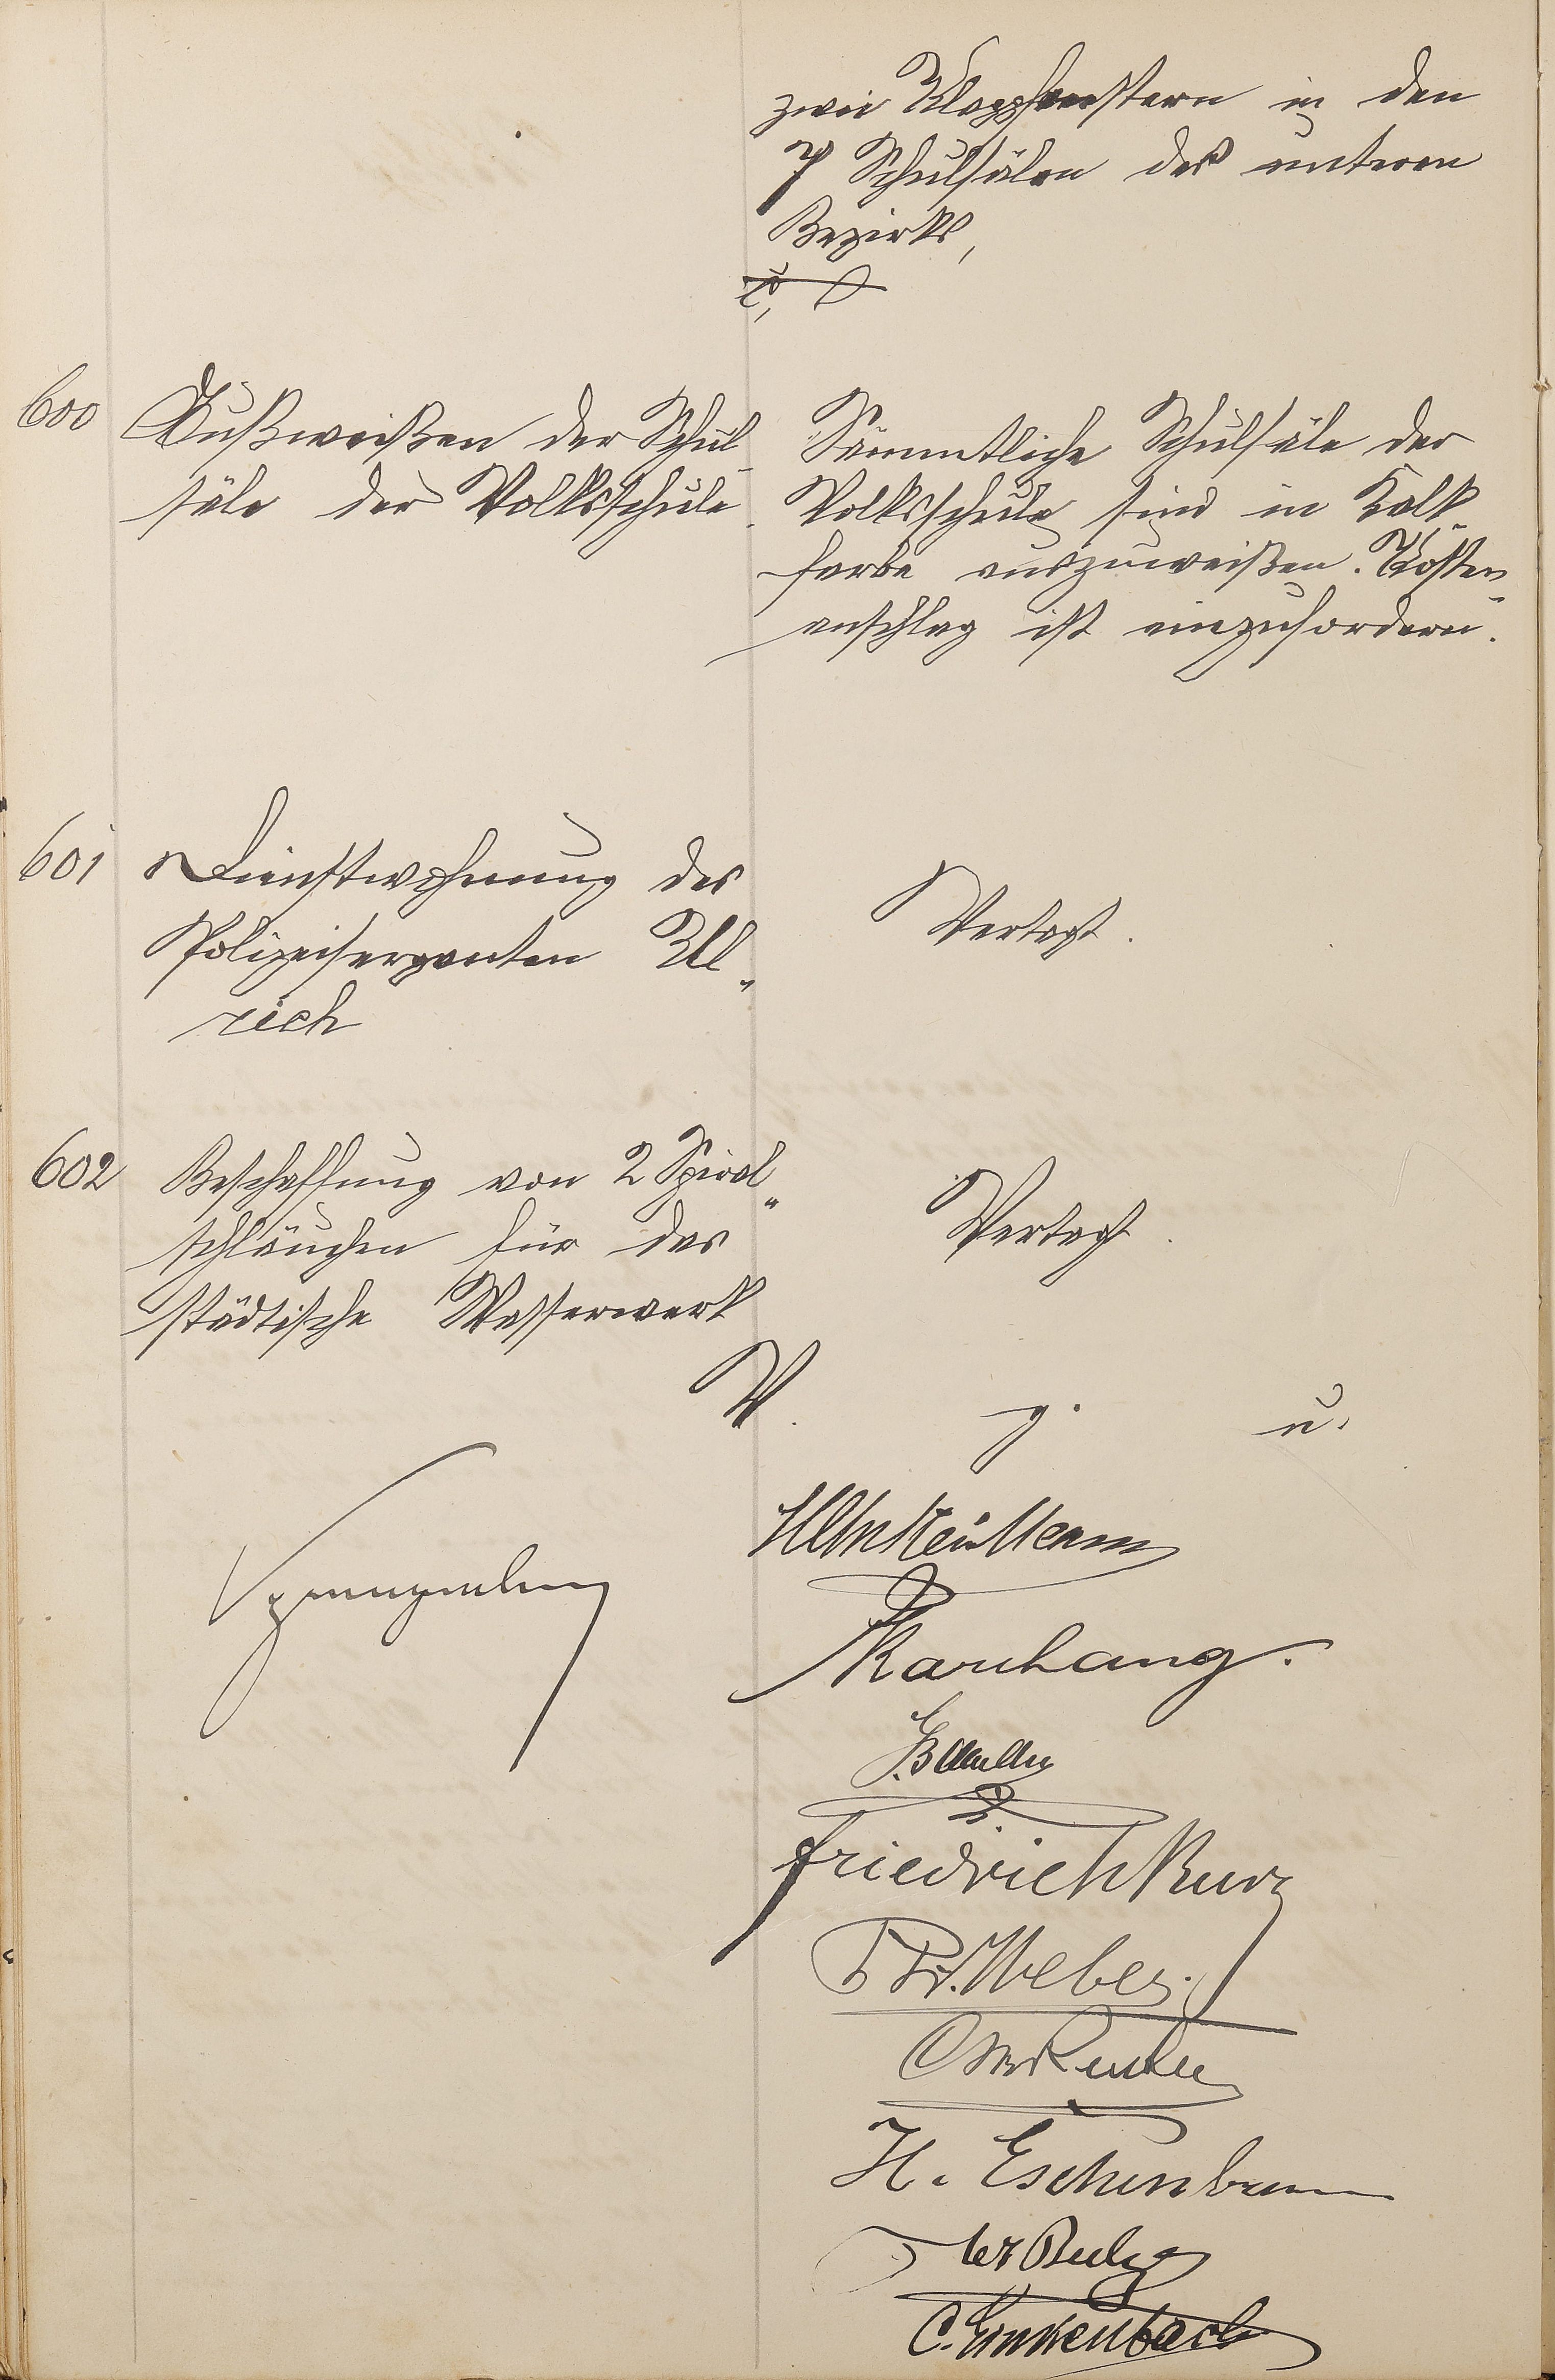 zwei Klappfenstern in den
7 Schulsälen des unteren
Bezirks,
600
Ausweißen der Schul-
säle der Volksschule.
Sämmtliche Schulsäle der
Volksschule sind in Kalk-
farbe auszuweißen. Kosten-
anschlag ist einzufordern.
601
Dienstwohnung des
Polizeisergeanten Ul-
rich
Vertagt.
602
Beschaffung von 2 Spiral-
schläuchen für das
städtische Wasserwerk
Vertagt.
V. g. u.
Karchang.
Friedrich Kurz
Weber.
H. Eschenbaum